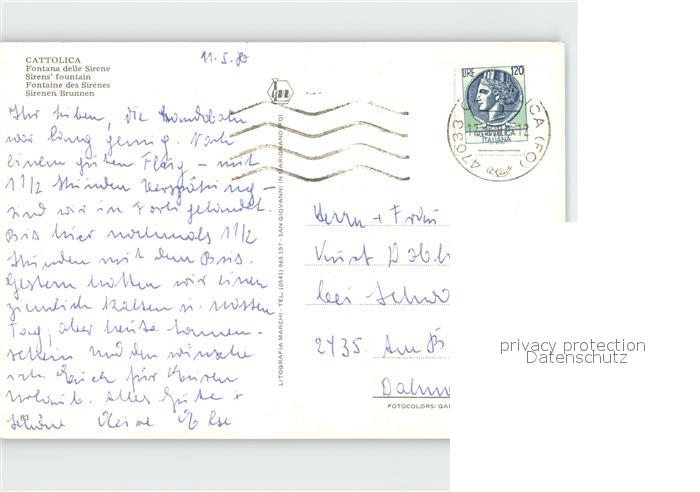 CATTOLICA
Fontana delle Sirene
Sirens' fountain
Fontaine des Sirènes
Sirenen Brunnen
11.5.
Ihr Lieben, die
war lang genug. Nach
einem guten Flug – mit
1 1/2 Stunden Verspätung –
sind wir in Forli gelandet.
Bis hier nochmals 1 1/2
Stunden mit dem Bus.
Gestern hatten wir einen
ziemlich kalten u. nassen
Tag, aber heute Sonnen-
schein und den wünsche
ich Euch für Euren
Urlaub. Alles Gute +
Schöne
81
LITOGRAFIA MARCHI - TEL. (0541) 965.157 - SAN GIOVANNI IN MARIGNANO (FO)
LIRE 120
REPUBBLICA
ITALIANA
47033
ICA (FO)
12
Herrn + Frau
Kurt
bei
2435 Am
FOTOCOLORS: GA
privacy protection
Datenschutz